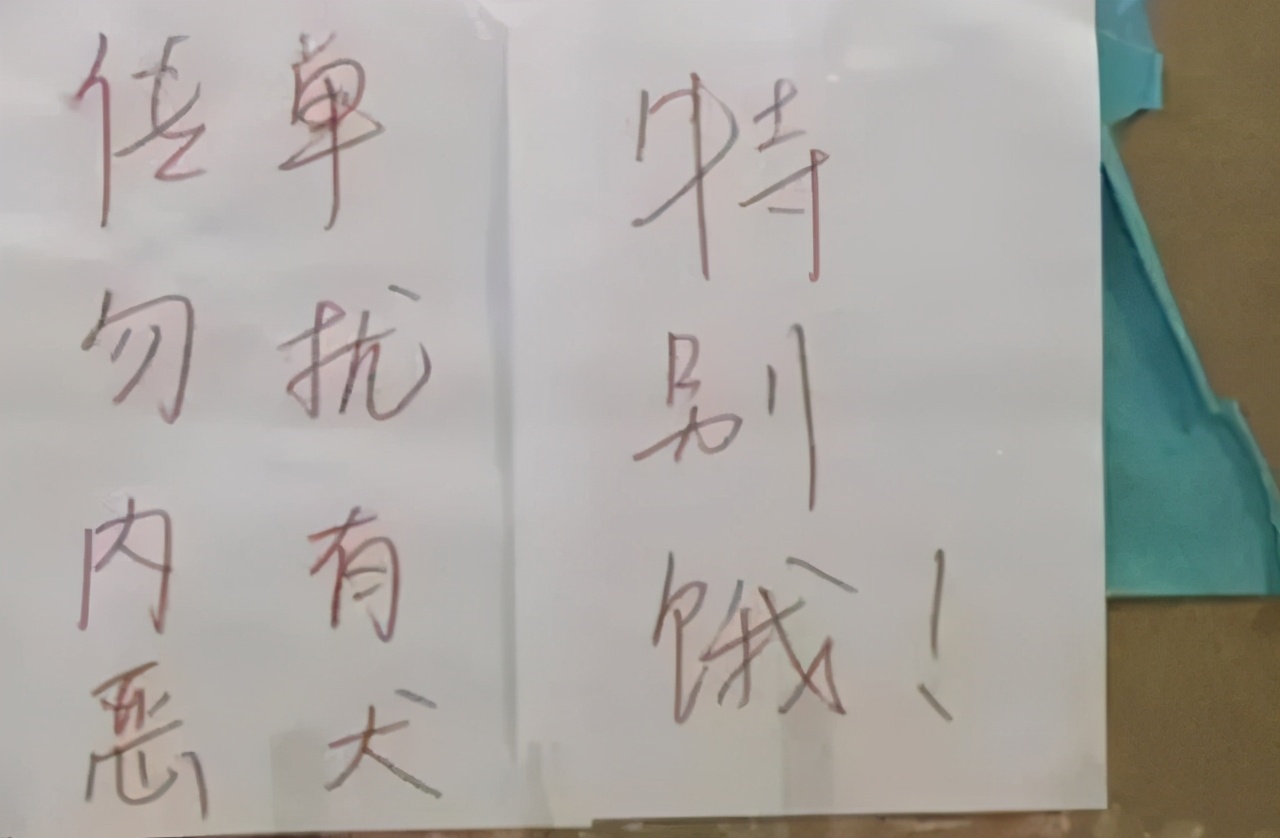 传单
勿扰
内有
恶犬
特
别
饿！